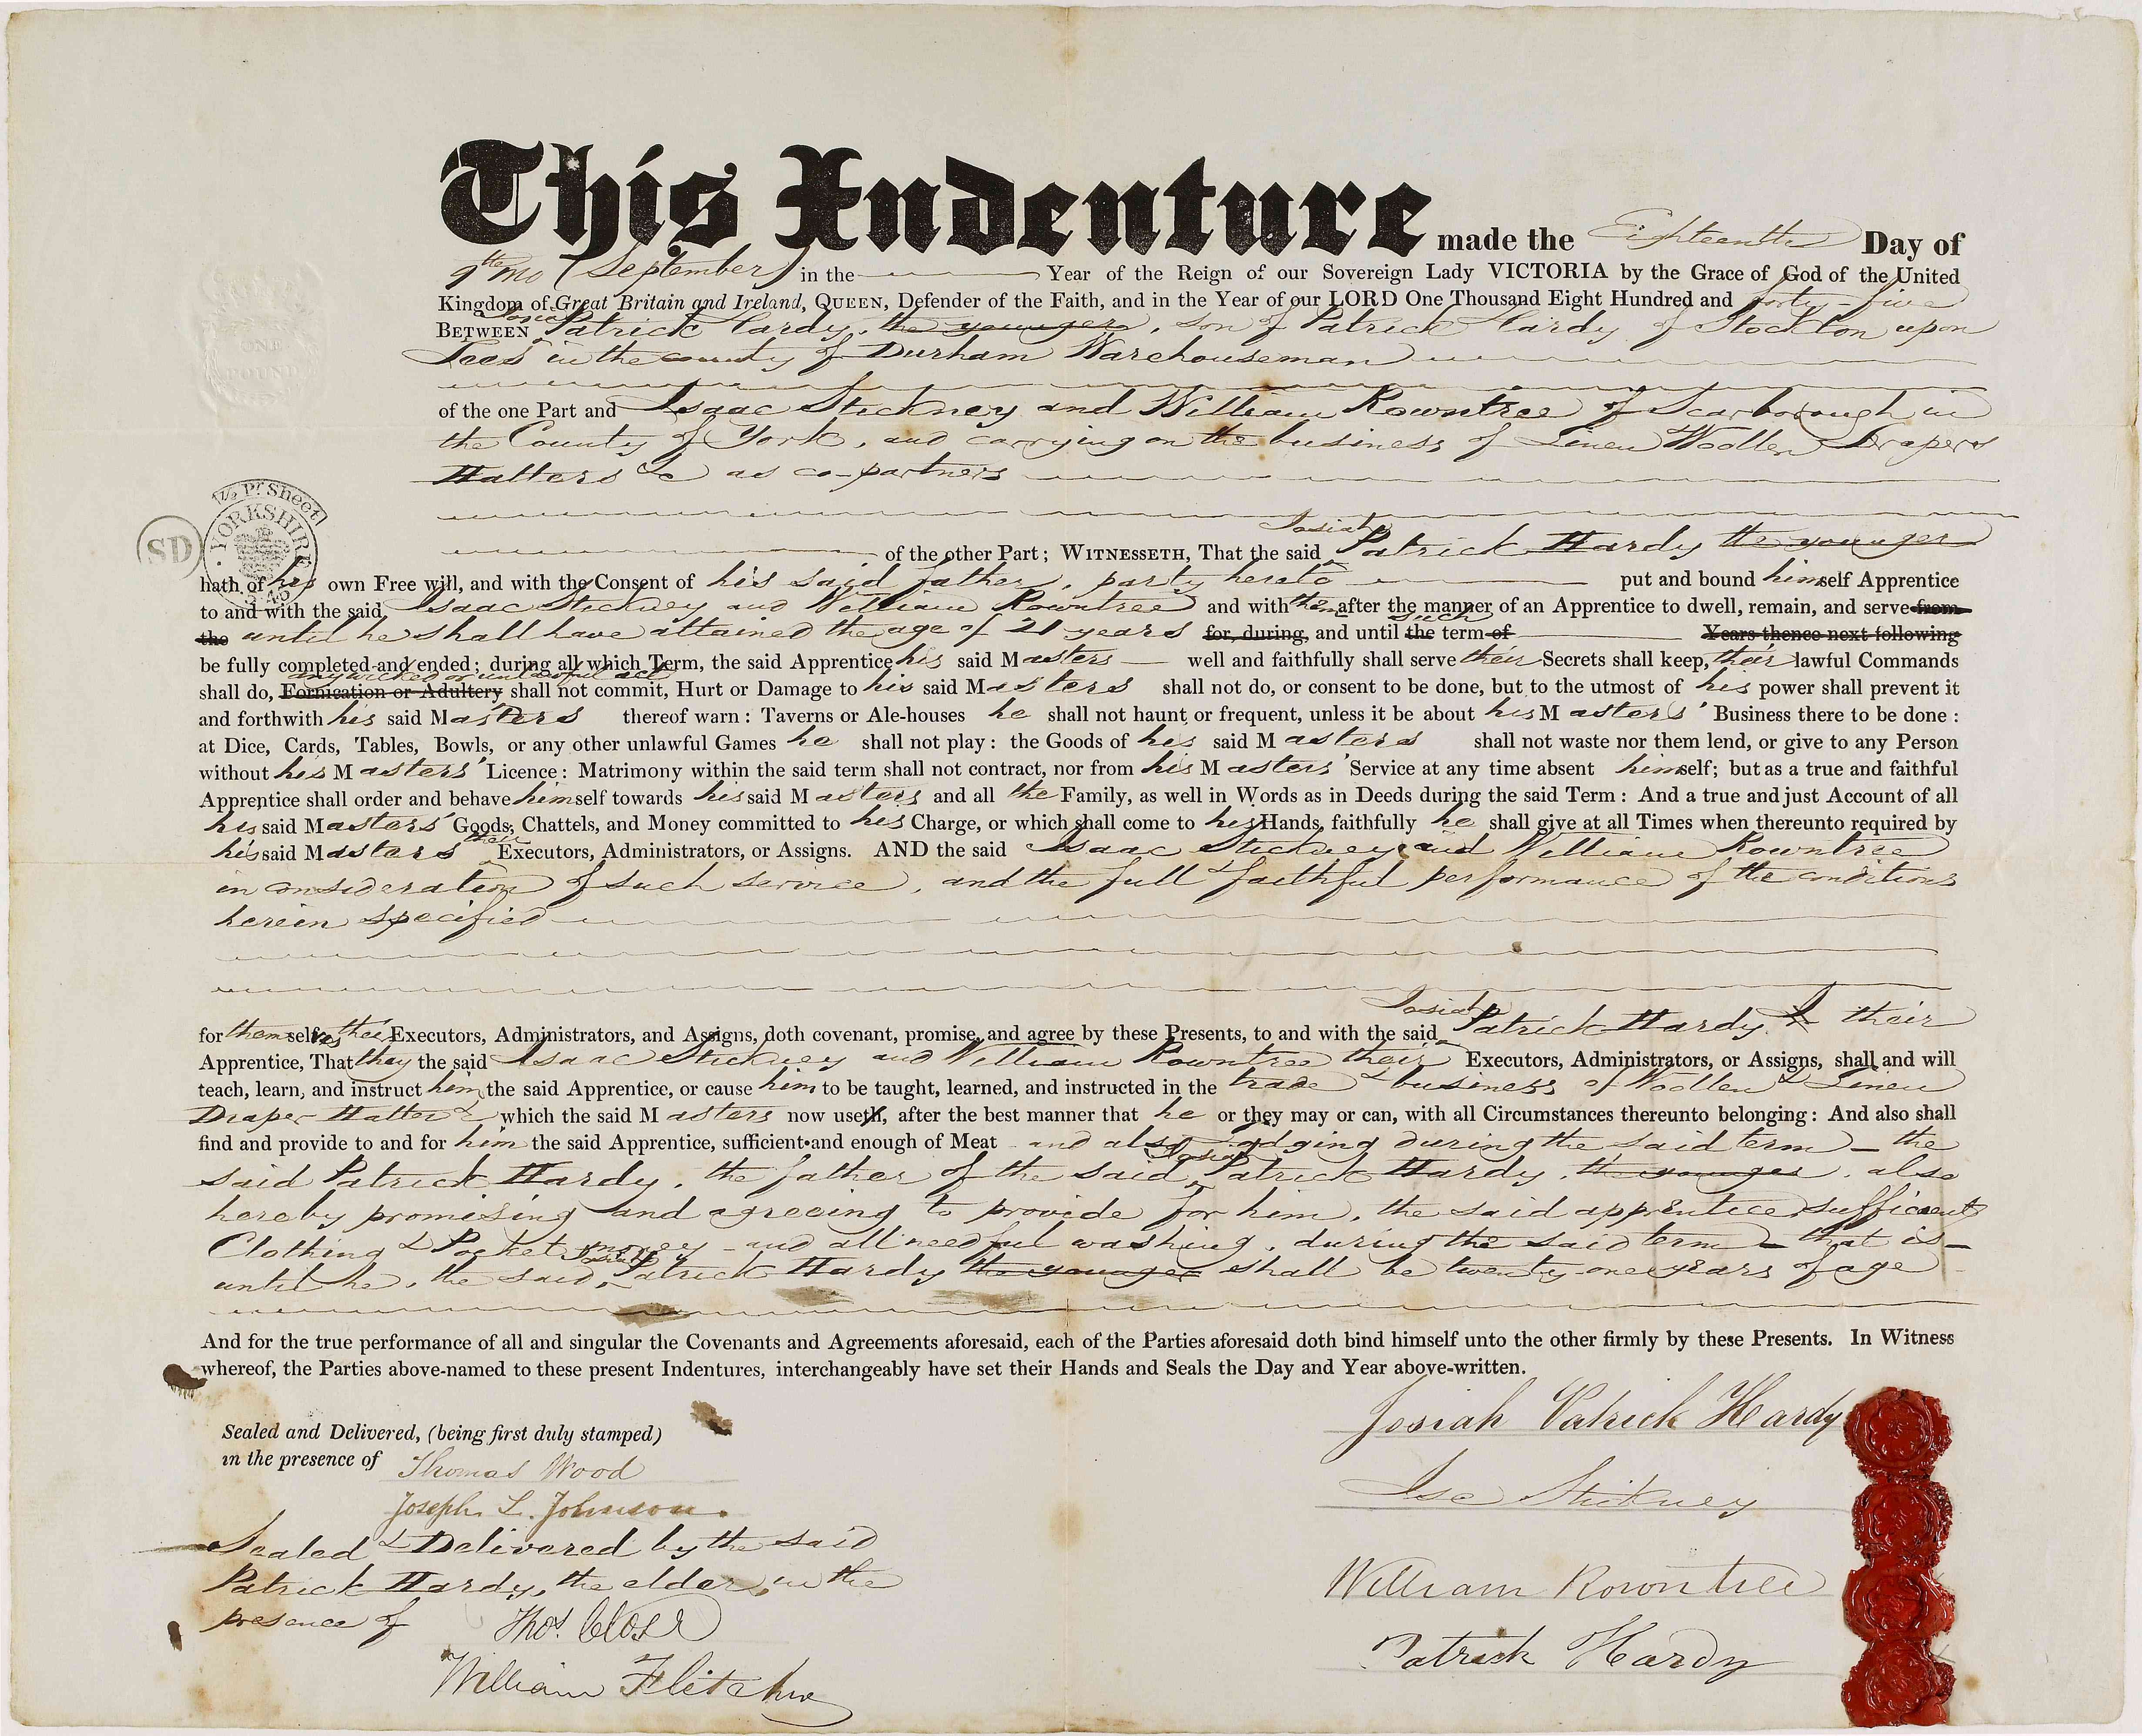 This Indenture made the Eighteenth Day of
9th mo (September) in the Year of the Reign of our Sovereign Lady VICTORIA by the Grace of God of the United
Kingdom of Great Britain and Ireland, QUEEN, Defender of the Faith, and in the Year of our LORD One Thousand Eight Hundred and forty-five
BETWEEN Josiah Patrick Hardy, the younger, son of Patrick Hardy of Stockton upon
Tees in the county of Durham Warehouseman
ONE
POUND
of the one Part and Isaac Stickney and William Rowntree of Scarborough in
the County of York, and carrying on the business of Linen Woollen Drapers
Hatters &c as co-partners
1½ Pr Sheet
YORKSHIRE
SD
of the other Part; WITNESSETH, That the said Josiah Patrick Hardy the younger
hath of his own Free will, and with the Consent of his said father, party hereto put and bound himself Apprentice
to and with the said Isaac Stickney and William Rowntree and with them after the manner of an Apprentice to dwell, remain, and serve from
the until he shall have attained the age of 21 years for, during, and until the such term of Years thence next following
be fully completed and ended; during all which Term, the said Apprentice his said Masters well and faithfully shall serve their Secrets shall keep, their lawful Commands
shall do, Fornication or Adultery any wicked or unlawful act shall not commit, Hurt or Damage to his said Masters shall not do, or consent to be done, but to the utmost of his power shall prevent it
and forthwith his said Masters thereof warn: Taverns or Ale-houses he shall not haunt or frequent, unless it be about his Masters' Business there to be done:
at Dice, Cards, Tables, Bowls, or any other unlawful Games he shall not play: the Goods of his said Masters shall not waste nor them lend, or give to any Person
without his Masters' Licence: Matrimony within the said term shall not contract, nor from his Masters' Service at any time absent himself; but as a true and faithful
Apprentice shall order and behave himself towards his said Masters and all the Family, as well in Words as in Deeds during the said Term: And a true and just Account of all
his said Masters' Goods, Chattels, and Money committed to his Charge, or which shall come to his Hands, faithfully he shall give at all Times when thereunto required by
his said Masters their Executors, Administrators, or Assigns. AND the said Isaac Stickney and William Rowntree
in consideration of such service, and the full & faithful performance of the conditions
herein specified
for themselves their Executors, Administrators, and Assigns, doth covenant, promise, and agree by these Presents, to and with the said Josiah Patrick Hardy their
Apprentice, That they the said Isaac Stickney and William Rowntree their Executors, Administrators, or Assigns, shall and will
teach, learn, and instruct him the said Apprentice, or cause him to be taught, learned, and instructed in the trade & business of Woollen & Linen
Draper Hatter &c which the said Masters now useth, after the best manner that he or they may or can, with all Circumstances thereunto belonging: And also shall
find and provide to and for him the said Apprentice, sufficient and enough of Meat and also lodging during the said term – the
said Patrick Hardy, the father of the said Josiah Patrick Hardy, the younger, also
hereby promising and agreeing to provide for him, the said apprentice sufficient
Clothing & Pocket money – and all needful washing, during the said term – that is –
until he, the said Josiah Patrick Hardy the younger shall be twenty-one years of age
And for the true performance of all and singular the Covenants and Agreements aforesaid, each of the Parties aforesaid doth bind himself unto the other firmly by these Presents. In Witness
whereof, the Parties above-named to these present Indentures, interchangeably have set their Hands and Seals the Day and Year above-written.
Sealed and Delivered, (being first duly stamped)
in the presence of Thomas Wood
Joseph L. Johnson.
Sealed & Delivered by the said
Patrick Hardy, the elder, in the
presence of Thos. Close
William Fletcher
Josiah Patrick Hardy
Isc Stickney
William Rowntree
Patrick Hardy